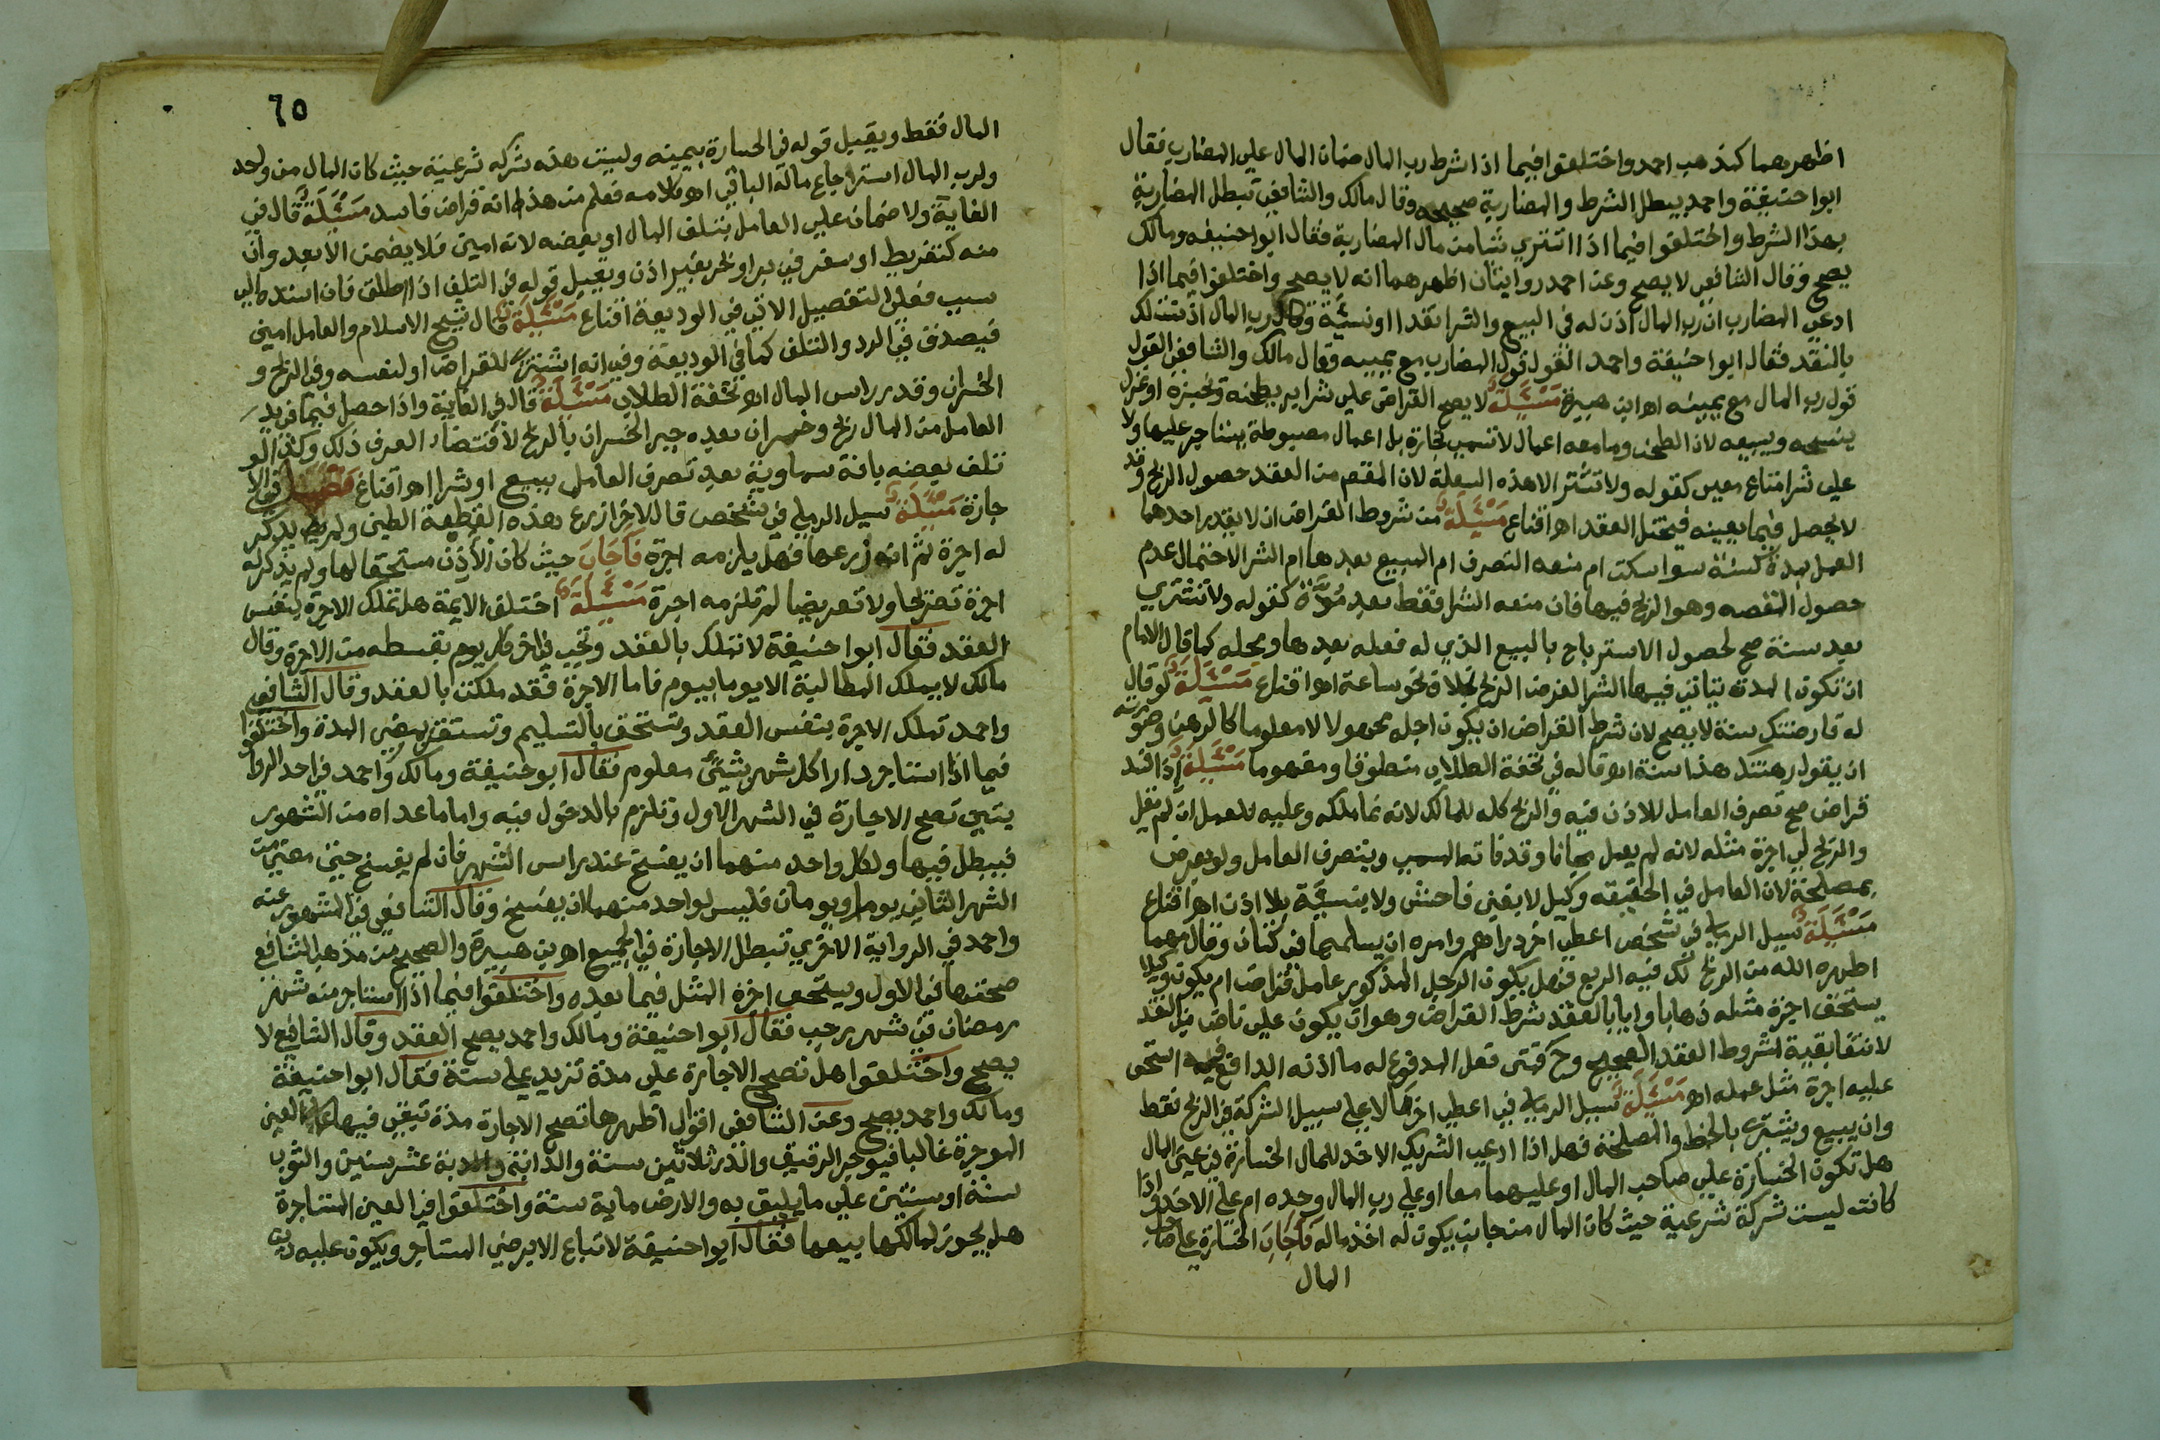 اظهرهما كمذهب احمد واختلفوا فيما اذا شرط رب المال ضمان المال علي المضارب فقال
ابوا حنيفة واحمد يبطل الشرط والمضاربة صحيحه وقال مالك والشافعي تبطل المضاربة
بهذا الشرط واختلفوا فيما اذا اشتري شيا من مال المضاربة فقال ابوا حنيفه ومالك
يصح وقال الشافعي لا يصح وعن احمد روايتان اظهرهما انه لا يصح واختلفوا فيما اذا
ادعي المضارب ان رب المال اذن له في البيع والشرا نقدا او نسئية وقال رب المال اذنت لك
بالنقد فقال ابوا حنيفة واحمد القول قول المضارب مع يمينه وقال مالك والشافعي القول
قول رب المال مع يمينه اه ابن هبيرة مسئيلة لا يصح القراض علي شرا بر يطحنه ويخبزه او غزل
ينسجه ويبيعه لان الطحن وما معه اعمال لا تسمي تجارة بل اعمال مضبوطة يستاجر عليها ولا
علي شرا متاع معين كقوله ولا تشتر الا هذه السلعة لان المقصد من العقد حصول الربح وقد
لا يحصل فيما يعينه فيختل العقد اه اقناع مسئيلة من شروط القراض ان لا يقدر احدهما
العمل بمدة كسنة سوا سكت ام منعه التصرف ام البيع بعدها ام الشرا لاحتمال عدم
حصول المقصد وهو الربح فيها فان منعه الشرا فقط بعد مدة كقوله ولا تشتري
بعد سنة صح لحصول الاسترباح بالبيع الذي له فعله بعدها ومحله كما قال الامام
ان تكون المدة يتاتي فيها الشرا لغرض الربح بخلاف نحو ساعة اه اقناع مسئيلة لو قال
له قارضتك سنة لا يصح لان شرط القراض ان يكون اجله مجهولا لا معلوما كالرهن وصورته
ان يقول رهنتك هذا سنة اه قاله في تحفة الطلاب منطوقا ومفهوما مسئيلة اذا فسد
قراض صح تصرف العامل للاذن فيه والربح كله للمالك لانه نما ملكه وعليه للعمل ان لم يقل
والربح لي اجرة مثله لانه لم يعمل مجانا وقد فاته المسمي ويتصرف العامل ولو بعرض
بمصلحة لان العامل في الحقيقه وكيل لا بغبن فاحش ولا بنسيئة بلا اذن اه اقناع
مسئيلة سيل الرملي في شخص اعطي اخر دراهم وامره ان يسلمها في كتان وقال مهما
اظهره الله من الربح لك فيه الربع فهل يكون الرجل المذكور عامل قراض ام يكون وكيلا
يستحق اجرة مثله ذهابا وايابا لفقد شرط القراض وهو ان يكون علي ناض قبل العقد
لانتفا بقية شروط العقد الصحيح وح فمتى فعل المدفوع له ما اذنه الدافع فيه استحق
عليه اجرة مثل عمله اه مسئيلة سيل الرملي في اعطي اخر مالا علي سبيل الشركة في الربح فقط
وان يبيع ويشتري بالحظ والمصلحة فهل اذا ادعي الشريك الاخذ للمال الخسارة في عين المال
هل تكون الخسارة علي صاحب المال او عليهما معا او علي رب المال وحده ام علي الاخذ واذا
كانت ليست شركة شرعية حيث كان المال من جانب يكون له اخذ ماله فاجاب الخسارة علي صاحب
المال
٦٥
المال فقط ويقبل قوله في الخسارة بيمينه وليست هذه شركه شرعية حيث كان المال من واحد
ولرب المال استرجاع ماله الباقي اه كلامه فعلم من هذا انه قراض فاسد مسئيلة قال في
الغاية ولا ضمان علي العامل بتلف المال او بعضه لانه امين فلا يضمن الا بعدوان
منه كتفريط او سفر في بر او بحر بغير اذن ويقبل قوله في التلف اذا اطلق فان اسنده الي
سبب فعلي التفصيل الاتي في الوديعة اقناع مسئيلة قال شيخ الاسلام والعامل امين
فيصدق في الرد والتلف كما في الوديعة وفي انه اشتري للقراض او لنفسه وفي الربح و
الخسران وقدر راس المال اه تحفة الطلاب مسئيلة قال في الغاية واذا حصل فيما في يد
العامل من المال ربح وخسران بعده جبر الخسران بالربح لاقتضاء العرف ذلك وكذا لو
تلف بعضه بافة سماوية بعد تصرف العامل ببيع او شرا اه اقناع فصل في الا
جارة مسئيلة سيل الرملي في شخص قال لاخر ازرع هذه القطعة الطين ولم يذكر
له اجرة ثم انه زرعها فهل يلزمه اجرة فاجاب حيث كان الاذن مستحقا لها ولم يذكر له
اجرة تصريحا ولا تعريضا لم تلزمه اجرة مسئيلة اختلف الايمة هل تملك الاجرة بنفس
العقد فقال ابوا حنيفة لا تملك بالعقد وتجب في اخر كل يوم بقسطه من الاجرة وقال
مالك لا يملك المطالبة الا يوما بيوم فاما الاجرة فقد ملكت بالعقد وقال الشافعي
واحمد تملك الاجرة بنفس العقد وتستحق بالتسليم وتستقر بمضي المدة واختلفوا
فيما اذا استاجر دارا كل شهر بشيئ معلوم فقال ابو حنيفة ومالك واحمد في احد الروا
يتين تصح الاجارة في الشهر الاول وتلزم بالدخول فيه واما ما عداه من الشهور
فيبطل فيها ولكل واحد منهما ان يفسخ عند راس الشهر فان لم يفسخ حتي مضي من
الشهر الثاني يوما او يومان فليس لواحد منهما ان يفسخ وقال الشافعي في المشهور عنه
واحمد في الرواية الاخري تبطل الاجارة في الجميع اه بن هبيرة والصحيح من مذهب الشافعي
صحتها في الاول ويستحق اجرة المثل فيما بعده واختلفوا فيما اذا استاجر منه شهر
رمضان في شهر رجب فقال ابوا حنيفة ومالك واحمد يصح العقد وقال الشافعي لا
يصح واختلفوا هل تصح الاجارة علي مدة تزيد علي سنة فقال ابوا حنيفة
ومالك واحمد يصح وعن الشافعي اقوال اظهرها تصح الاجارة مدة تبقي فيها العين
الموجرة غالبا فيوجر الرقيق والدار ثلاثين سنة والدابة عشر سنين والثوب
سنة او سنتين علي ما يليق به والارض ماية سنة واختلفوا في العين المستاجرة
هل يجوز لمالكها بيعها فقال ابوا حنيفة لا تباع الا برضي المستاجر ويكون عليه دين